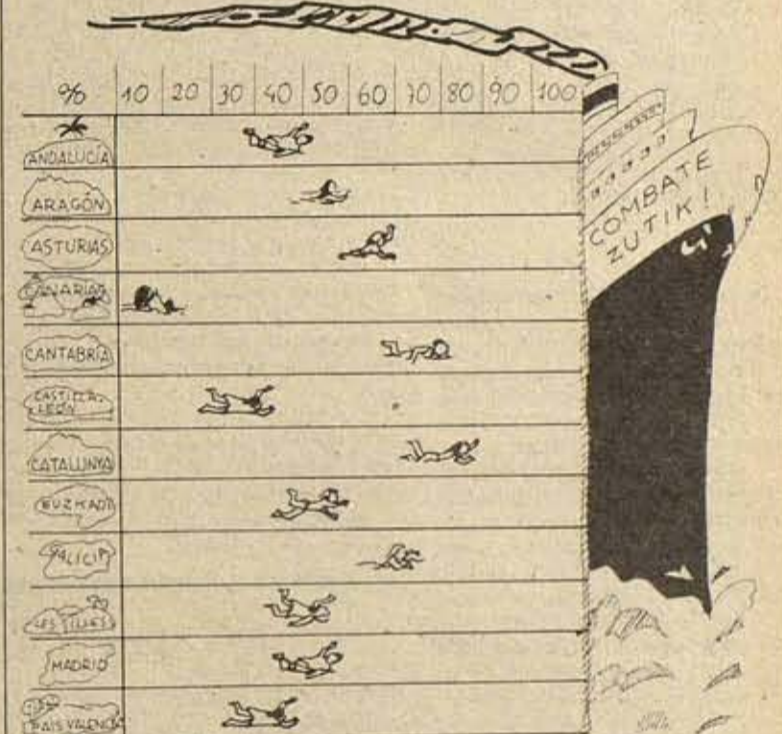 % 10 20 30 40 50 60 70 80 90 100
ANDALUCÍA
ARAGÓN
ASTURIAS
CANARIAS
CANTABRIA
CASTILLA-
LEÓN
CATALUNYA
EUZKADI
GALICIA
LES ILLES
MADRID
PAIS VALENCIA
COMBATE
ZUTIK!